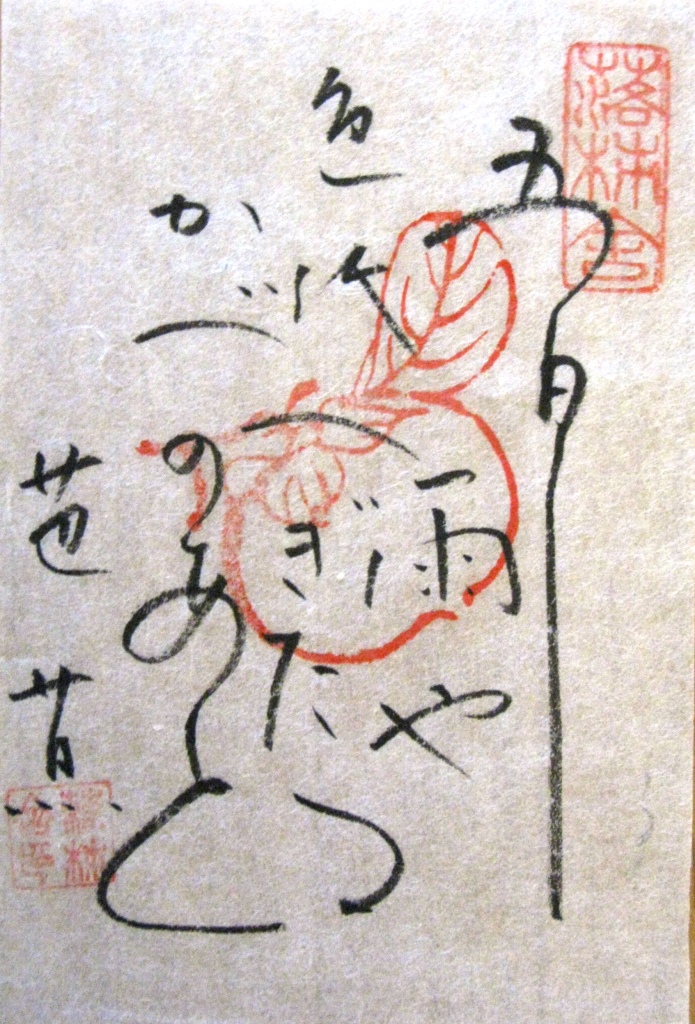 落柿舎
五月
雨や
色紙
へぎたる
かべ
のあと
芭蕉